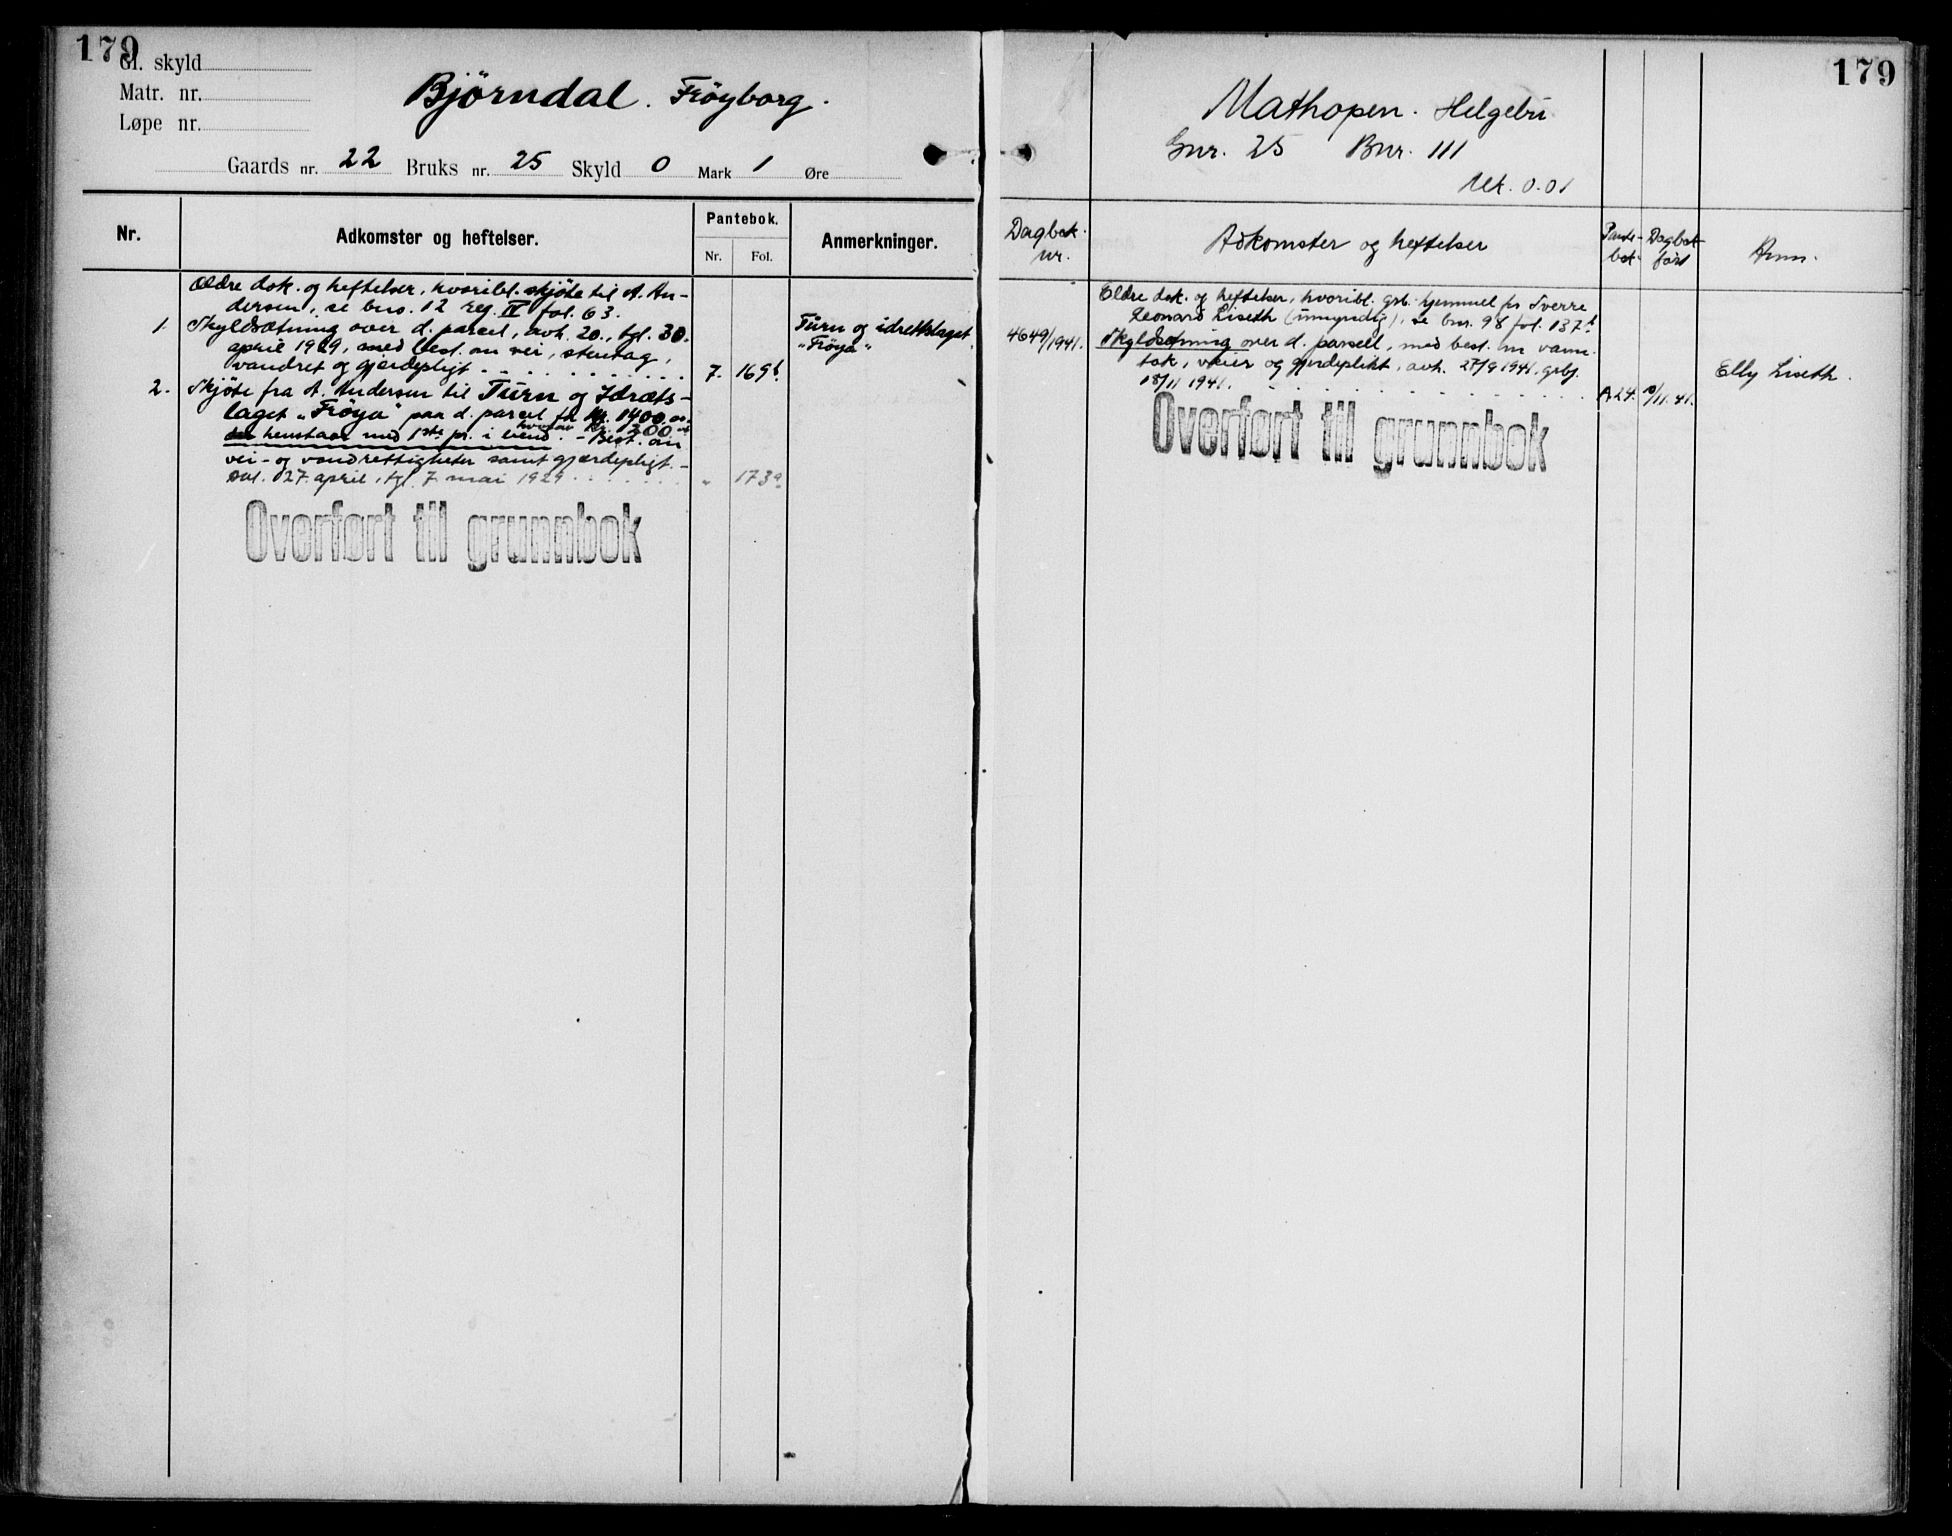 179
Gl. skyld
Matr. nr.
Løpe nr.
Bjørndal. Frøyborg.
Gaards nr. 22 Bruks nr. 25 Skyld 0 Mark 1 Øre
Nr.
Adkomster og heftelser.
Pantebok.
Nr. Fol.
Anmerkninger.
Ældre dok. og heftelser, hvoribl. skjöte til A. An-
dersen, se bno. 12 reg. IV fol. 63.
1. Skyldsætning over d. parcel, avh. 20., tgl. 30.
april 1929, med best. om vei, stentag,
vandret og gjerdepligt 7. 169b.
Turn og idrettslaget
„Frøya"
2. Skjøte fra A. Andersen til Turn og Idræts-
laget „Frøya" paa d. parcel for Kr. 1400.00
hvorav Kr. 1200.00
henstaar med 1ste pr. i eiend. - Best. om
vei- og vandrettigheter samt gjærdepligt. -
Dat. 27. april, tgl. 7. mai 1929 „ 173a
Overført til grunnbok
179
Mathopen. Helgebu
Gnr. 25 Bnr. 111
Mk. 0.01
Dagbok
nr.
Adkomster og heftelser
Pante-
bok
Dagbok
ført
Anm.
Eldre dok. og heftelser, hvoribl. grb. hjemmel for Sverre
Leonard Liseth (umyndig), se bnr. 98 fol. 137b
4649/1941. Skyldsetning over d. parsell, med best. om vann-
tak, veier og gjerdeplikt, avh. 27/9 1941, grbf.
18/11 1941. A24. /11.41.
Elly Liseth.
Overført til grunnbok